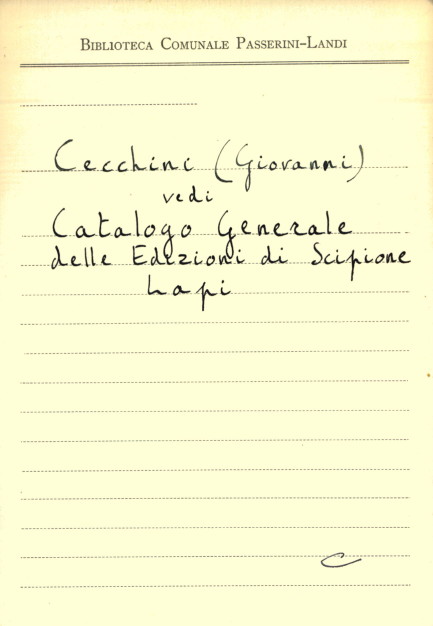 BIBLIOTECA COMUNALE PASSERINI-LANDI
Cecchini (Giovanni)
vedi
Catalogo Generale
delle Edizioni di Scipione
Lapi
C